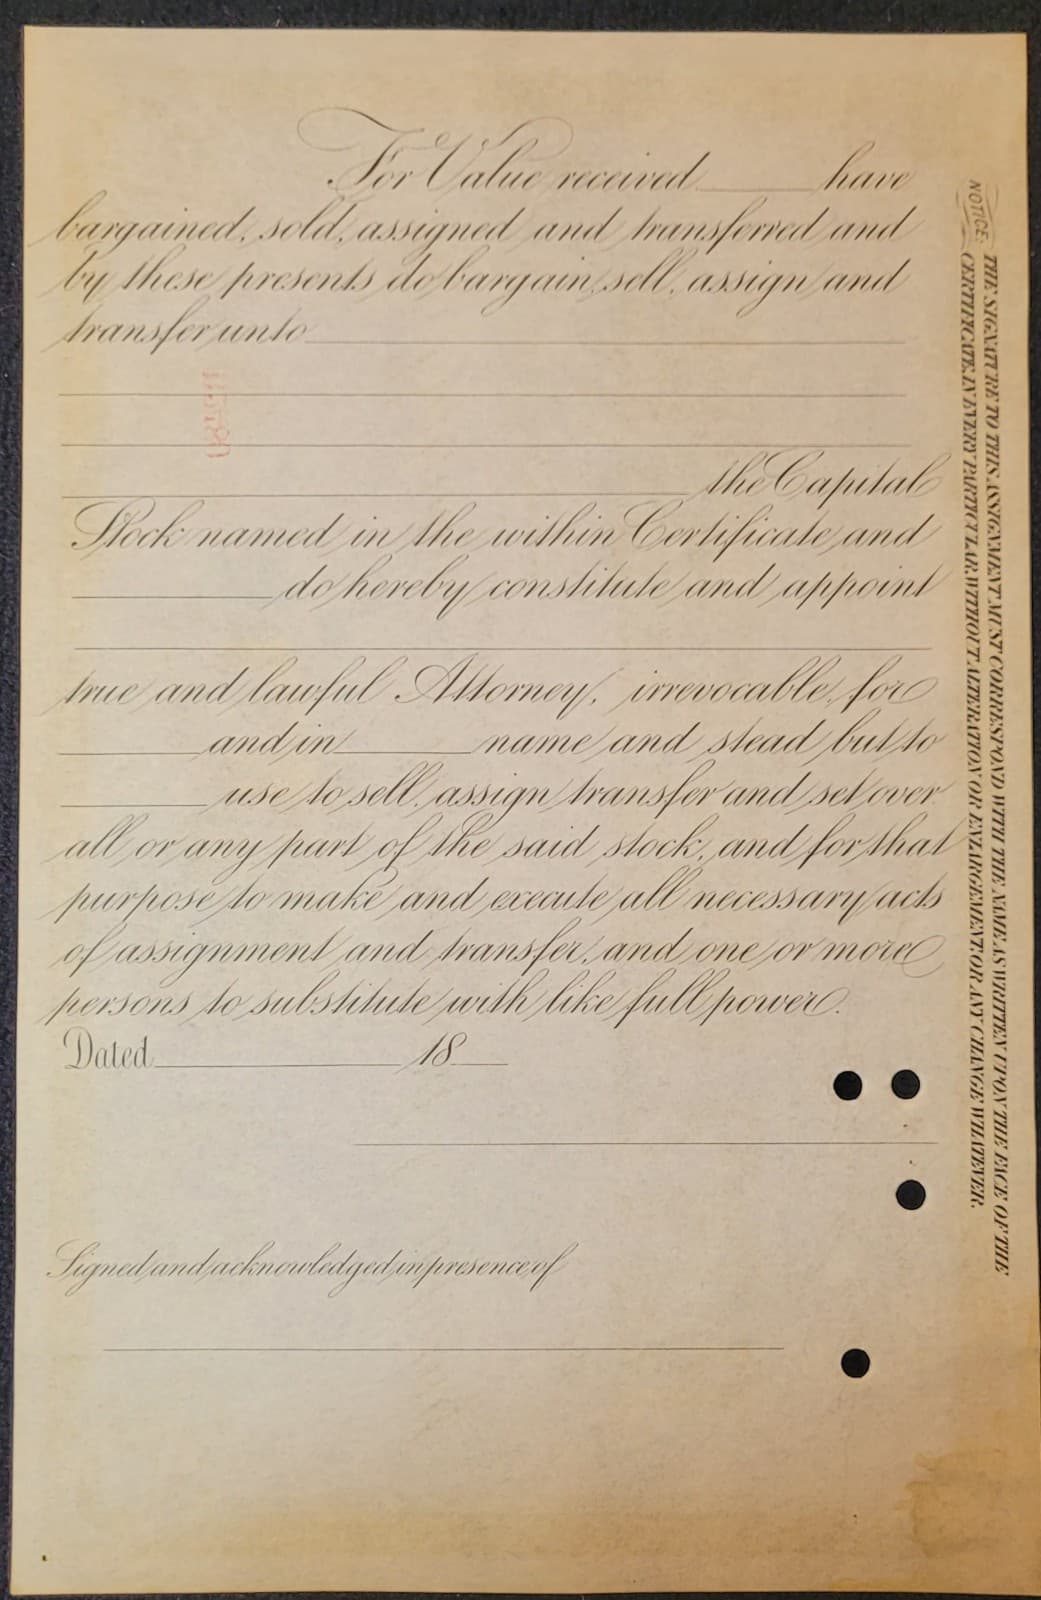 For Value received ______ have
bargained, sold, assigned and transferred and
by these presents do bargain, sell, assign and
transfer unto ______
______ the Capital
Stock named in the within Certificate and
______ do hereby constitute and appoint
true and lawful Attorney, irrevocable, for
______ and in ______ name and stead but to
______ use to sell, assign transfer and set over
all or any part of the said stock, and for that
purpose to make and execute all necessary acts
of assignment and transfer, and one or more
persons to substitute with like full power.
Dated ______ 18__
Signed and acknowledged in presence of
NOTICE: THE SIGNATURE TO THIS ASSIGNMENT MUST CORRESPOND WITH THE NAME AS WRITTEN UPON THE FACE OF THE
CERTIFICATE, IN EVERY PARTICULAR, WITHOUT ALTERATION OR ENLARGEMENT, OR ANY CHANGE WHATEVER.